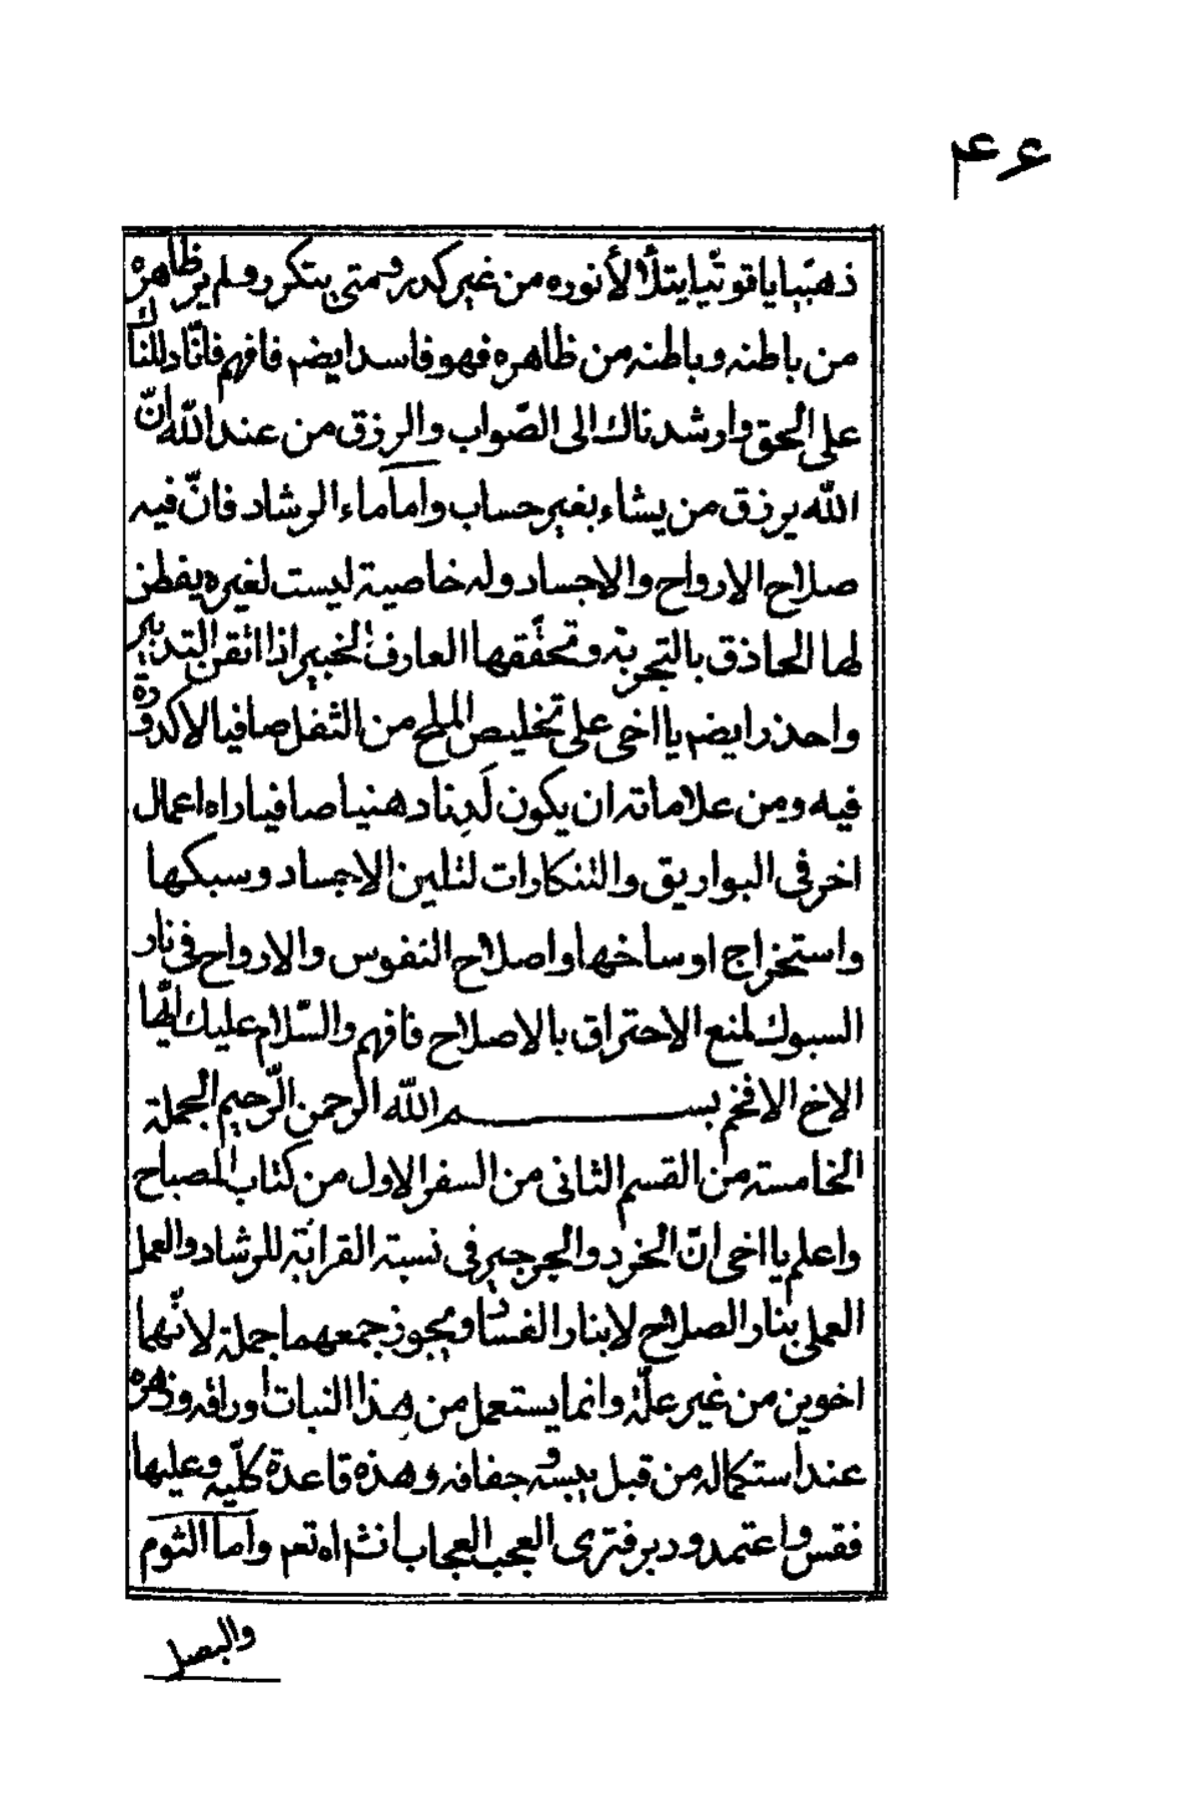 ۴۶
ذهبيا ياقوتيا يتلألأ نوره من غير كدر ومتى يتكرر ولم ير ظاهره
من باطنه وباطنه من ظاهره فهو فاسد ايضم فافهم فانّا دللناك
على الحق وارشدناك الى الصّواب والرزق من عند الله انّ
الله يرزق من يشاء بغير حساب وأما ماء الرشاد فانّ فيه
صلاح الارواح والاجساد وله خاصية ليست لغيره يفطن
لها الحاذق بالتجربة وتحقّقها العارف الخبير اذا اتقن التدبير
واحذر ايضم يا اخى على تخليص الملح من الثفل صافيا لاكدورة
فيه ومن علاماته ان يكون لَدِنا دهنيا صافيا راه اعمال
اخر فى البواريق والتنكارات لتليين الاجساد وسبكها
واستخراج اوساخها واصلاح النفوس والارواح فى نار
السبوك لمنع الاحتراق بالاصلاح فافهم والسّلام عليك ايّها
الاخ الافخم بسم الله الرحمن الرّحيم الجملة
الخامسته من القسم الثانى من السفر الاول من كتاب المصباح
واعلم يا اخى انّ الخرد والجرجير فى نسبتة القرابة للرشاد والعمل
العملى بنار الصلاح لابنار الفساد ويجوز جمعهما جملة لانّهما
اخوين من غير علّة وانما يستعمل من هذا النبات اوراقه وزهره
عند استكماله من قبل يبسه وجفافه وهذه قاعدة كلّيه وعليها
فقس واعتمد ودبر فترى العجب العجاب انشاه تعم وأما الثوم
والبصل